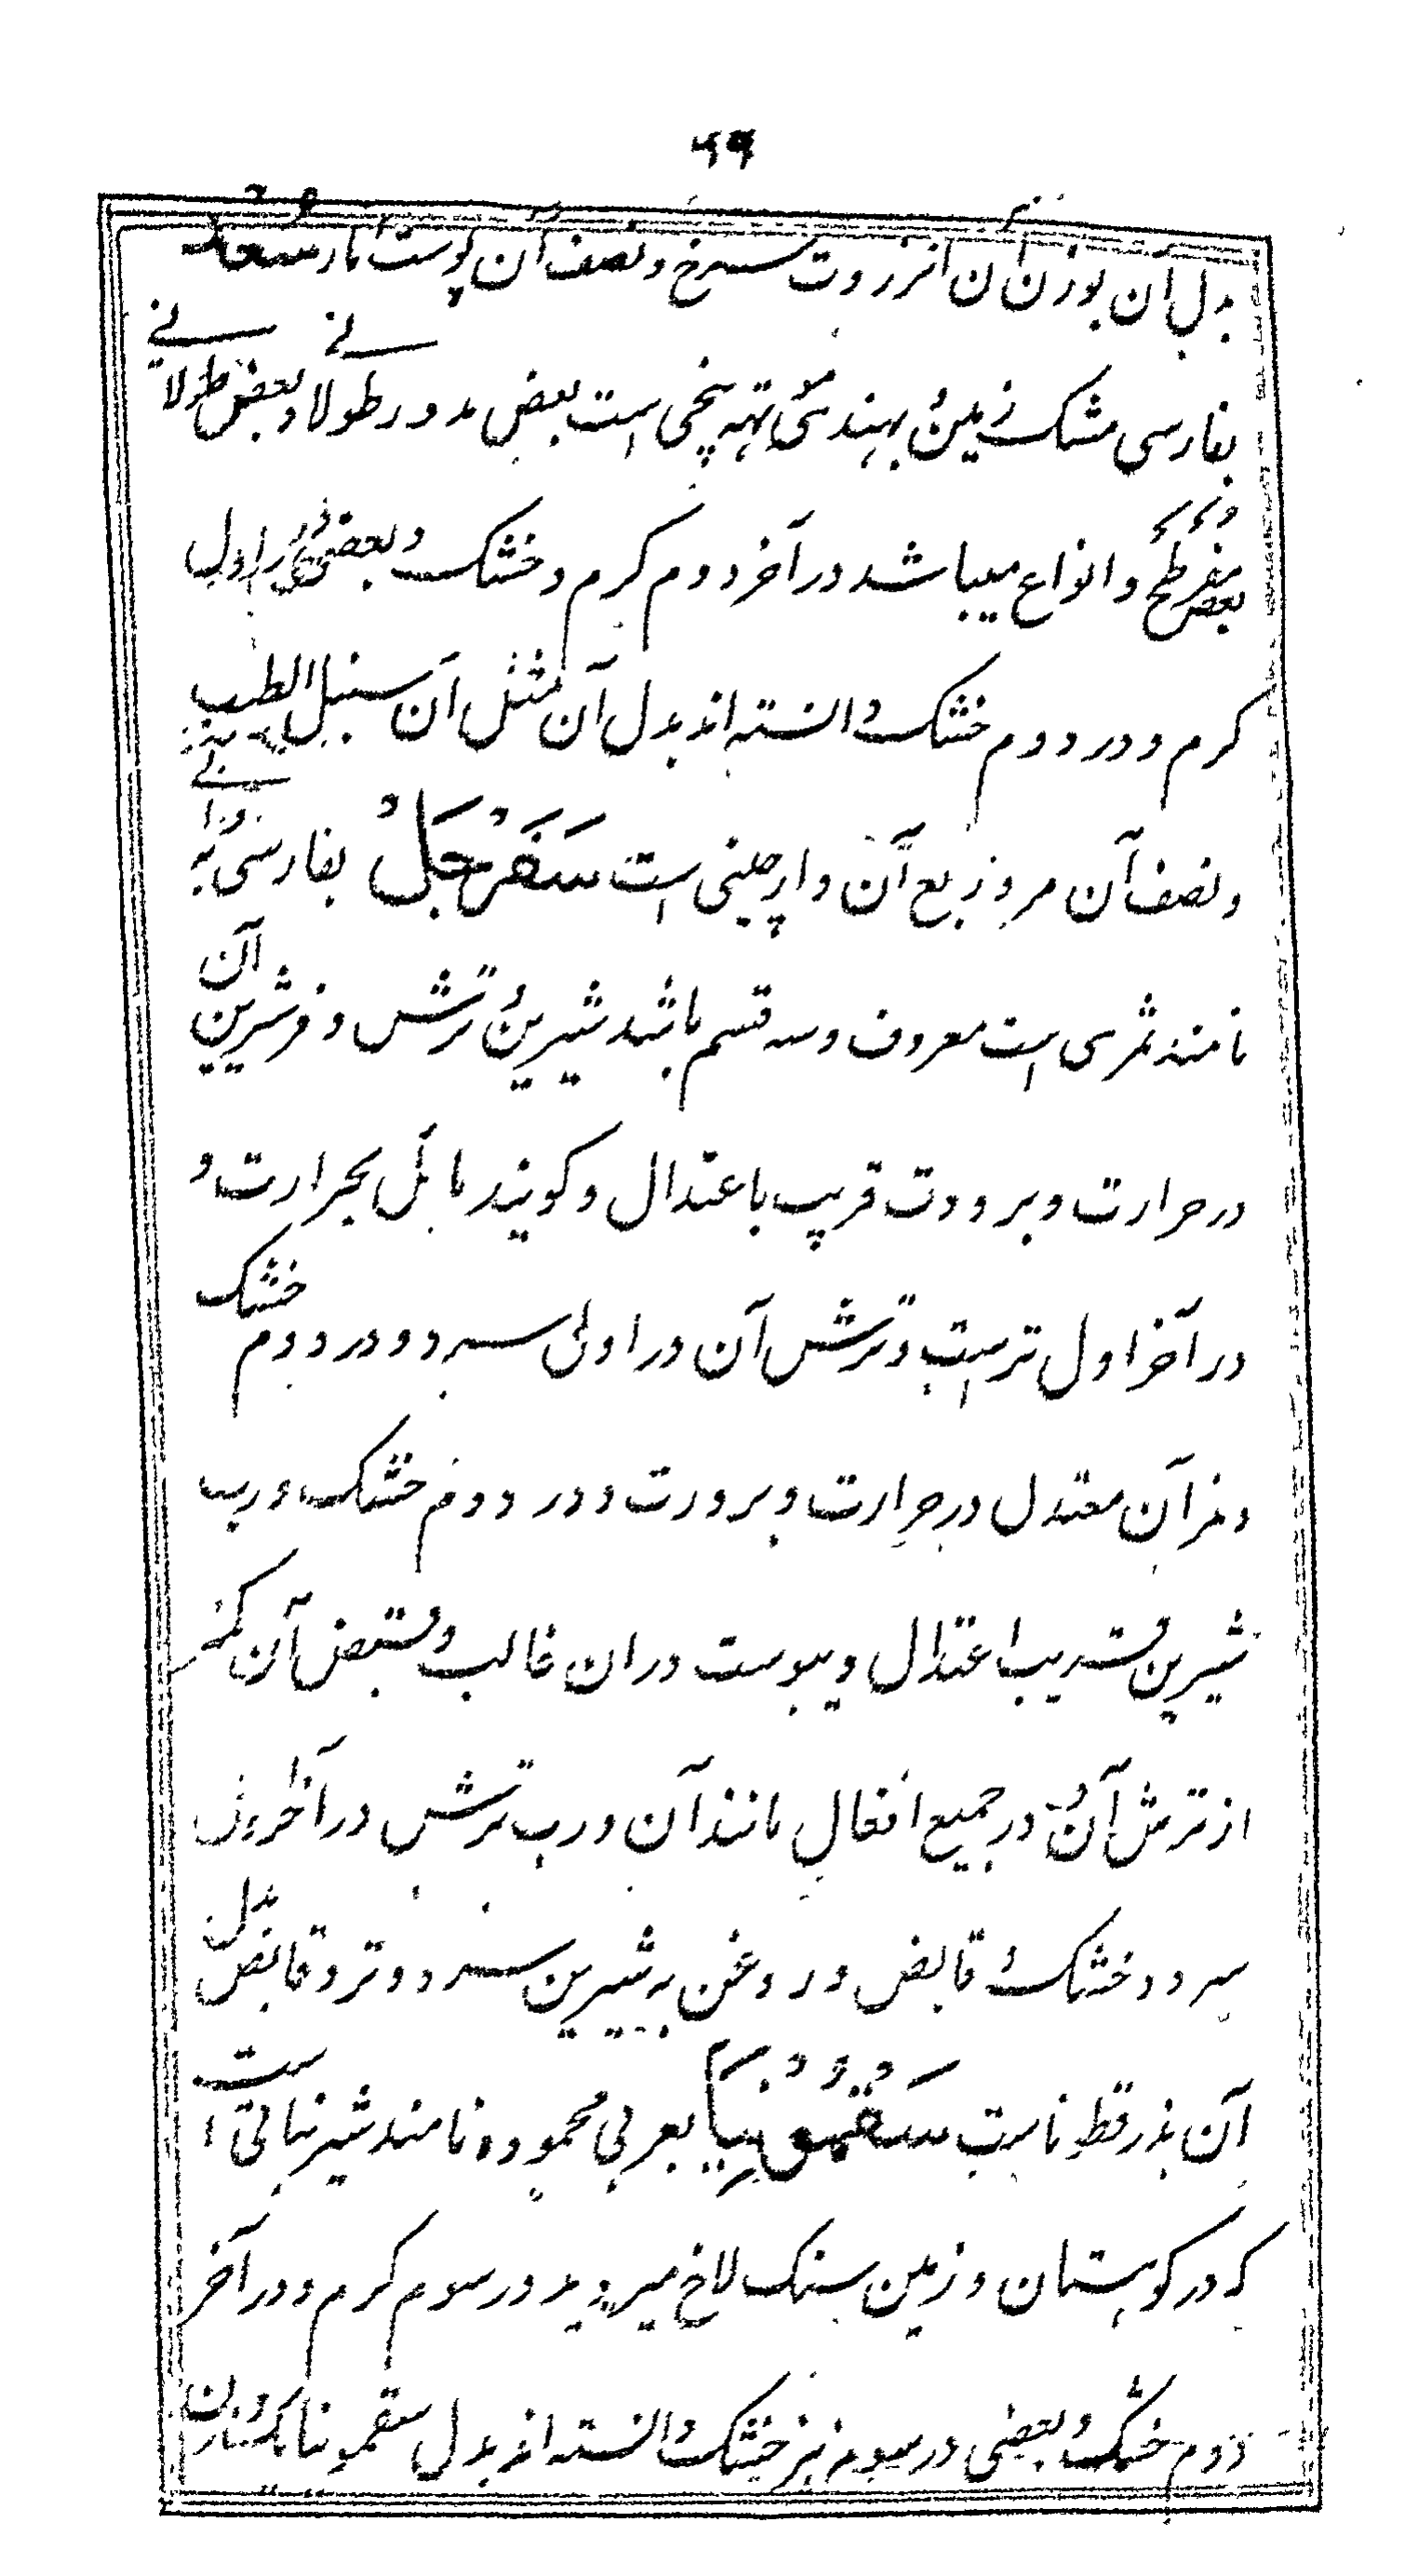 ۶۹
بدل آن بوزن آن انزروت سرخ و نصف آن پوست انار سُعْد
بفارسی مشک زمین و بهندی موتهه بیخی است بعض مدور طولانی و بعض طولانی
و بعض مفرطح و انواع میباشد در آخر دوم کرم و خشک و بعضی در اول
کرم و در دوم خشک دانسته اند بدل آن مثل آن سنبل الطیب
و نصف آن مر و ربع آن دارچینی است سَفَرْجَلْ بفارسی به
نامند ثمری است معروف و سه قسم باشد شیرین و ترش و مز شیرین آن
در حرارت و برودت قریب باعتدال و کویند مائل بحرارت و
در آخر اول تر است و ترش آن در اولی سرد و در دوم خشک
و مز آن معتدل در حرارت و برودت و در دوم خشک و رب
شیرین قریب اعتدال و یبوست در ان غالب و قبض آن کمتر
از ترش آن و در جمیع افعال مانند آن و رب ترش در آخر اول
سرد و خشک و قابض و روغن به شیرین سرد و تر و قابض بدل
آن بذر قطوناست سَقْمُوْنِیَا بعربی محموده نامند شیر نباتی است
که در کوهستان و زمین سنک لاخ میروید در سوم کرم و در آخر
دوم خشک و بعضی در سوم نیز خشک دانسته اند بدل سقمونیا